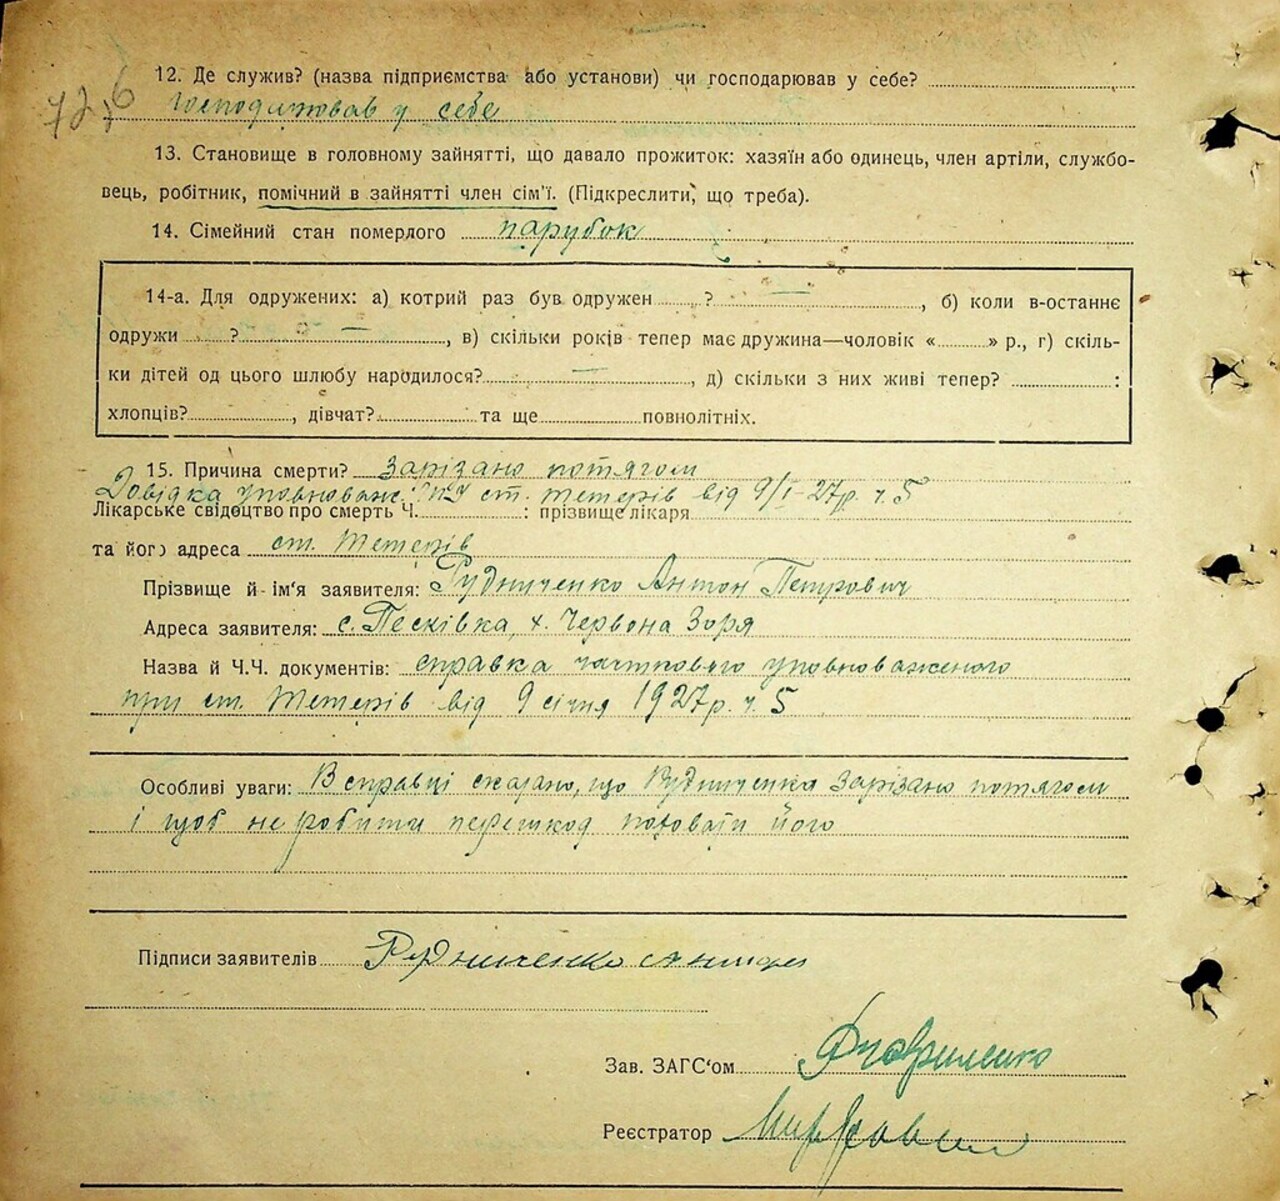 12. Де служив? (назва підприємства або установи) чи господарював у себе?
72,6 Господарював у себе
13. Становище в головному зайнятті, що давало прожиток: хазяїн або одинець, член артіли, службо-
вець, робітник, помічний в зайнятті член сім'ї. (Підкреслити, що треба).
14. Сімейний стан померлого парубок
14-а. Для одружених: а) котрий раз був одружен ? —, б) коли в-останнє
одружи ? —, в) скільки років тепер має дружина—чоловік « » р., г) скіль-
ки дітей од цього шлюбу народилося? —, д) скільки з них живі тепер? :
хлопців? , дівчат? та ще повнолітніх.
15. Причина смерти? Зарізано потягом
Довідка уповноваж. ст. Тетерів від 9/I-27р. ч. 5
Лікарське свідоцтво про смерть Ч. : прізвище лікаря
та його адреса ст. Тетерів
Прізвище й ім'я заявителя: Рудниченко Антон Петрович
Адреса заявителя: с. Песківка, х. Червона Зоря
Назва й Ч.Ч. документів: справка уповноваженого
при ст. Тетерів від 9 січня 1927р. ч. 5
Особливі уваги: В справці сказано, що Рудниченка зарізано потягом
і щоб не робити перешкод поховати його
Підписи заявителів Рудниченко Антон
Зав. ЗАГС'ом
Реєстратор